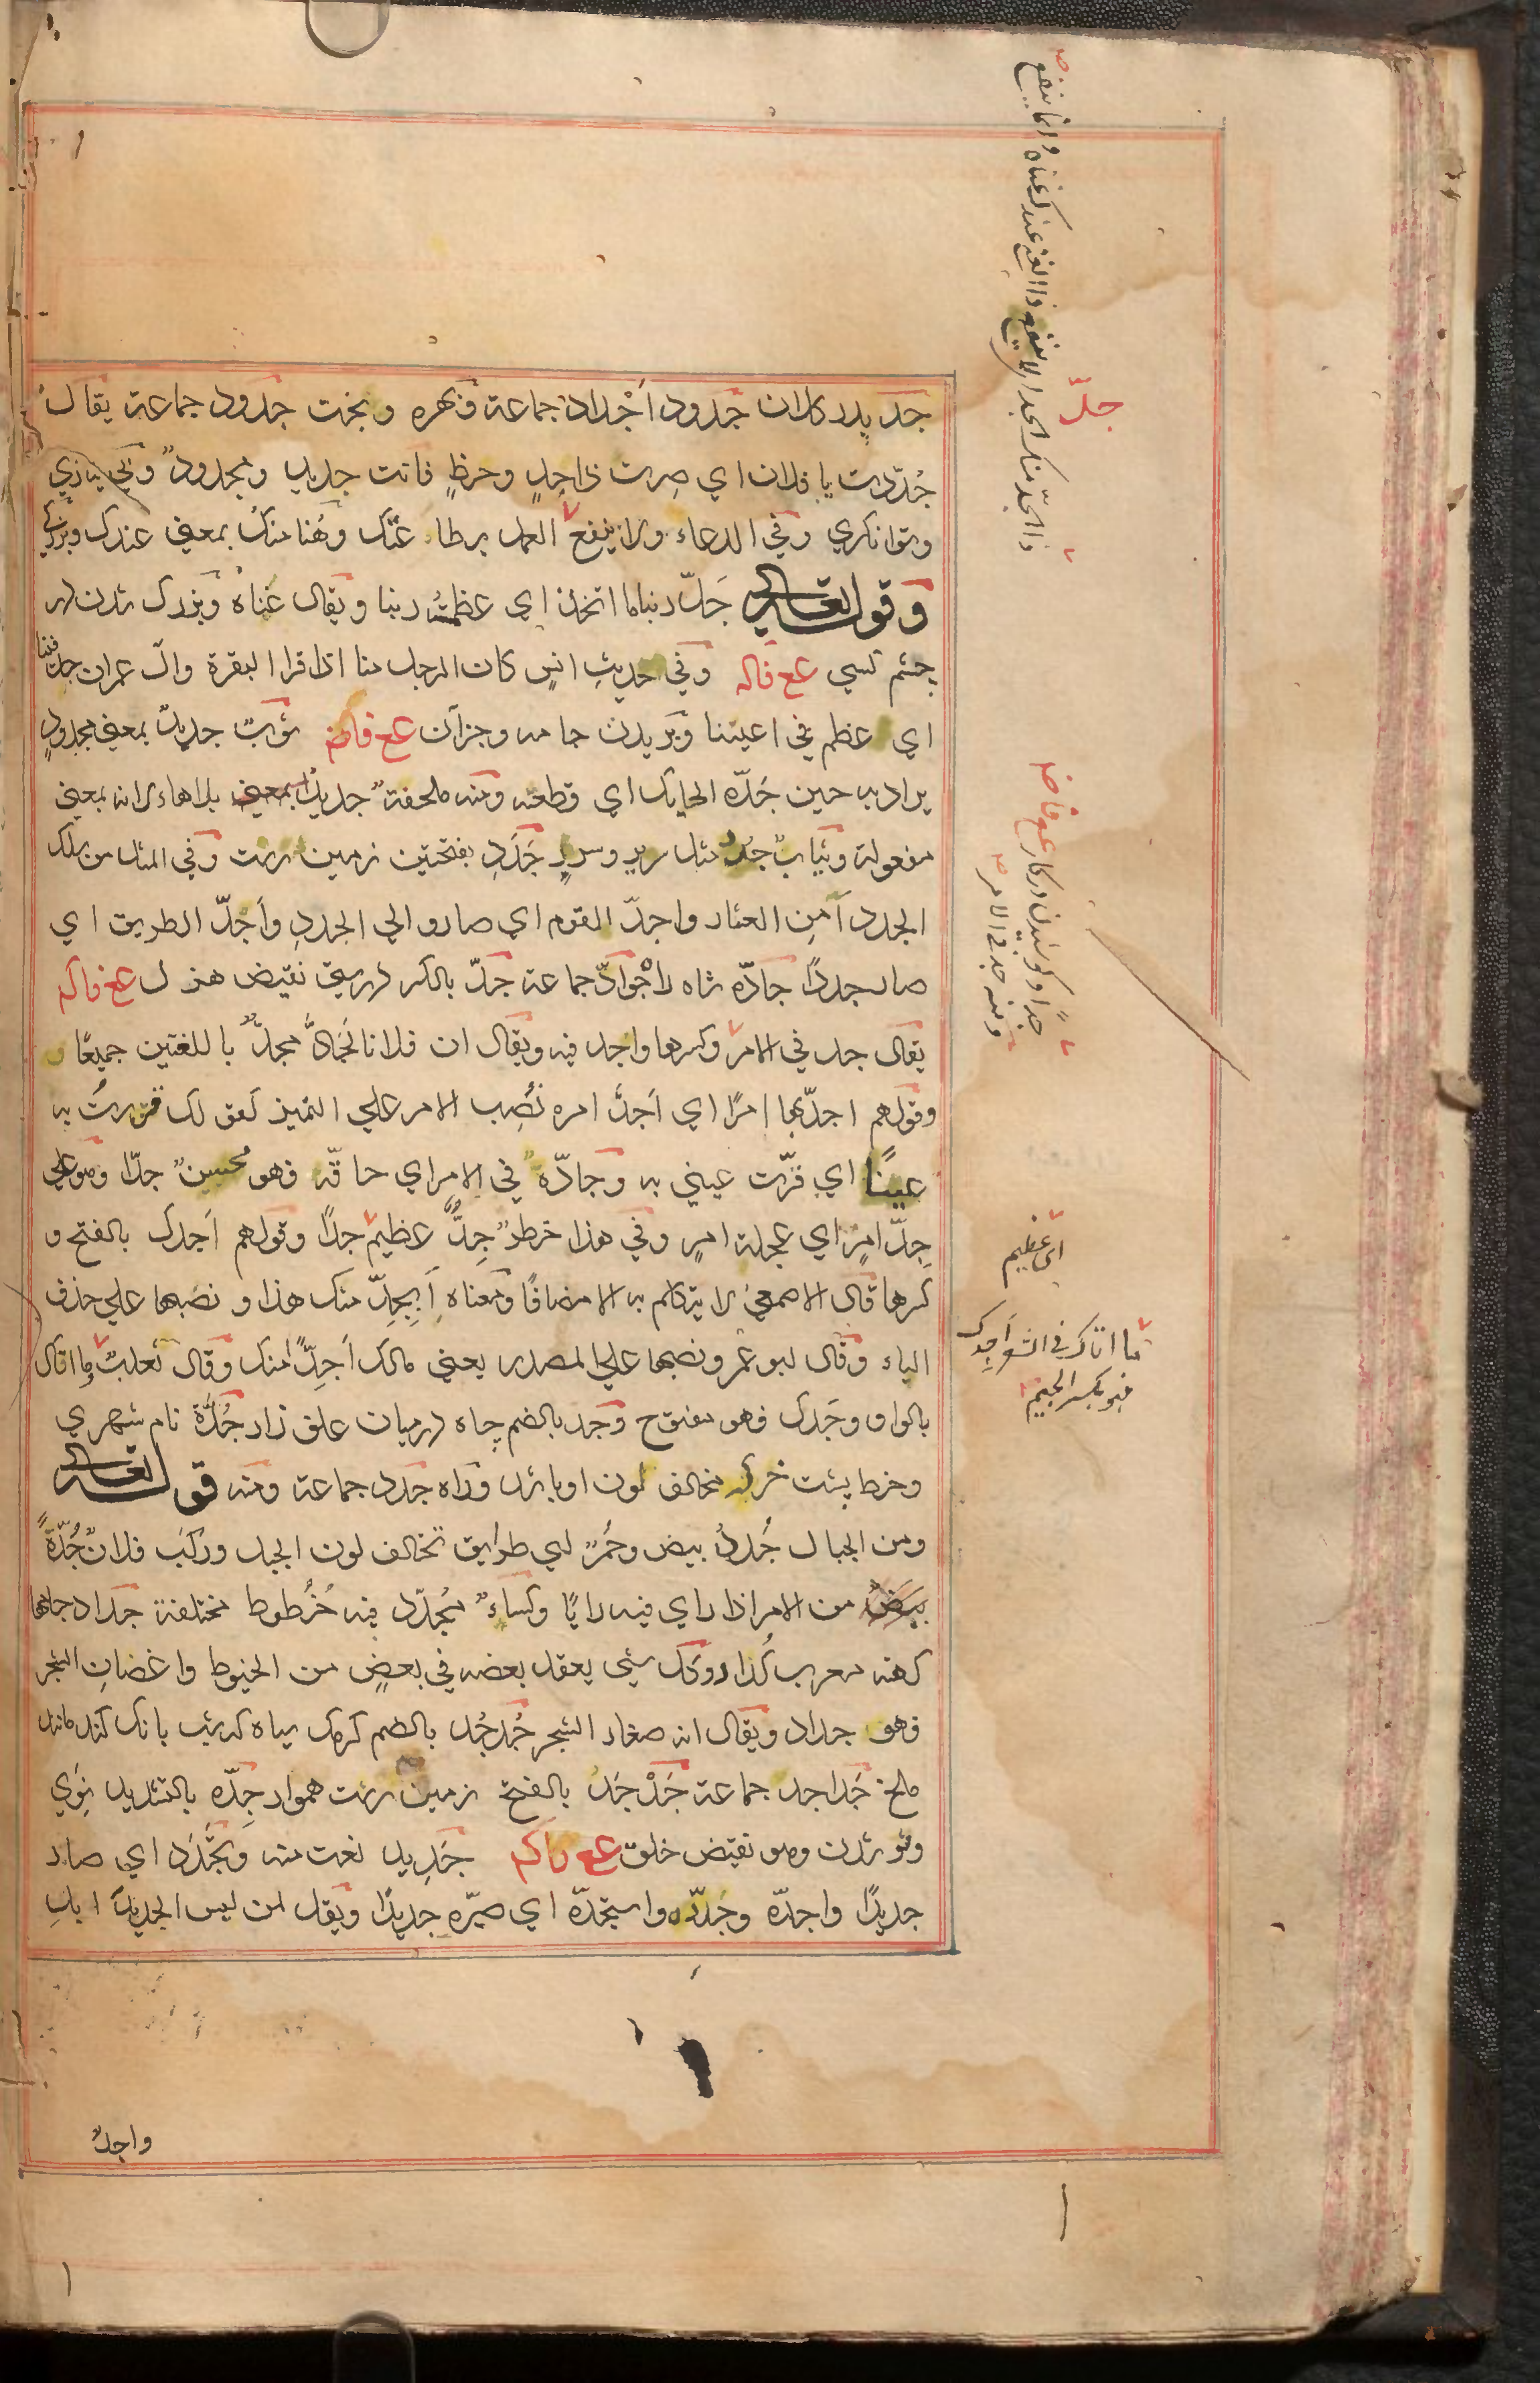 جد پدر کلان جدود اَجْداد جماعة وبهره وبخت جدود جماعة يقالُ
جُدِدتَ يا فلان اي صِرت ذا جدٍ وحظٍ فانت جديد ومجدودٌ وبي نيازي
وتوانکري وفي الدعاء ولا ينفع العمل بطاعتک وهُنا منکَ بمعني عندک وبزرکي
وقوله تعالى جَدّ ربنا ما اتخذ اي عظمةُ ربنا ويقال غناهُ وبزرک شدن در
چشم کسي عع فاله وفي حديثِ انسٍ کان الرجل منا اذا قرا البقرة وال عمران جدّ فينا
اي عظم في اعيننا وبريدن جامه وجزآن عع فاضم ثوبٌ جديدٌ بمعني مجدودٍ
يراد به حين جَدّه الحايک اي قطعه ومنه ملحفةٌ جديدٌ بلا هاء لانه بمعني
مفعولة وثيابٌ جُدُدٌ مثل سرير وسررٍ جَدَدِ بفتحتين زمين درشت وفي المثل من سلک
الجدد اَمِن العثار واجدّ القوم اي صاروا الي الجددِ واَجدّ الطريق اي
صار جددًا جادّه شاه راه جوادّ جماعة جدّ بالکسر درستي نقيض هزل عع فاکم
يقال جد في الامر وکسرها واجد فيه ويقال ان فلانا لَجادٌّ مجدٌّ باللغتين جميعًا
وقولهم اجدّبها امرًا اي اَجدَّ امره نُصِب الامر علي التميز کقولک قررتُ به
عينًا اي قرّت عيني به وجادّه في الامر اي حاقّه فهو محسنٌ جدّا وهو علي
جِدّ امرٍ اي عجلة امرٍ وفي هذا خطرٌ جِدُّ عظيم جدًا وقولهم اَجدک بالفتح و
کسرها قال الاصمعي لا يتکلم به الا مضافًا ومعناه اَبِجدِّ منک هذا ونصبها علي حذف
الباء وقال ابو عمر ونصبها علي المصدر يعني مالک اَجدًّا منک وقال ثعلبٌ وما اتاک
بالواو وجَدک فهو مفتوح وجد بالضم چاه درميان علف زار جُدّة نام شهري
وخط پشت خر که مخالف لون او باشد وراه جدد جماعة ومنه قوله تعالى
ومن الجبال جُددٌ بيض وحُمرٌ اي طرايق تخالف لون الجبل ورکب فلانٌ جُدّةً
من الامر اذا راي فيه رايًا وکساءٌ مُجدّد فيه خُطوط مختلفة جداد جامها
کهنه معرب کداد وکل شيء يعقد بعضه في بعضٍ من الخيوط واغصانِ الشجر
فهو جداد ويقال انه صغار الشجر جُدجُد بالضم کرمک سياه که بشب بانک کند مانند
ملخ جَداجد جماعة جَدْجَد بالفتح زمين درشت هموار جِدّه بالتشديد نَوي
ونو شدن وهو نقيض خلق عع فاکم جَديد نعت منه وتجَدَّد اي صار
جديدًا واجدّه وجَدّده واستجدّه اي صيّره جديدًا ويقل لمن ليس الجديدَ ابلِ
واجدٌ
جدّ
ذا الجدّ منک الجد اي لا ينفع ذا الغني عندک غناه وانما ينفع
جدّا وکوشيدن در کار عع فاضم
ومنه جد في الامر
اي عظيم
ما اتاک في الشعر اَجِدک
فهو بکسر الجيم